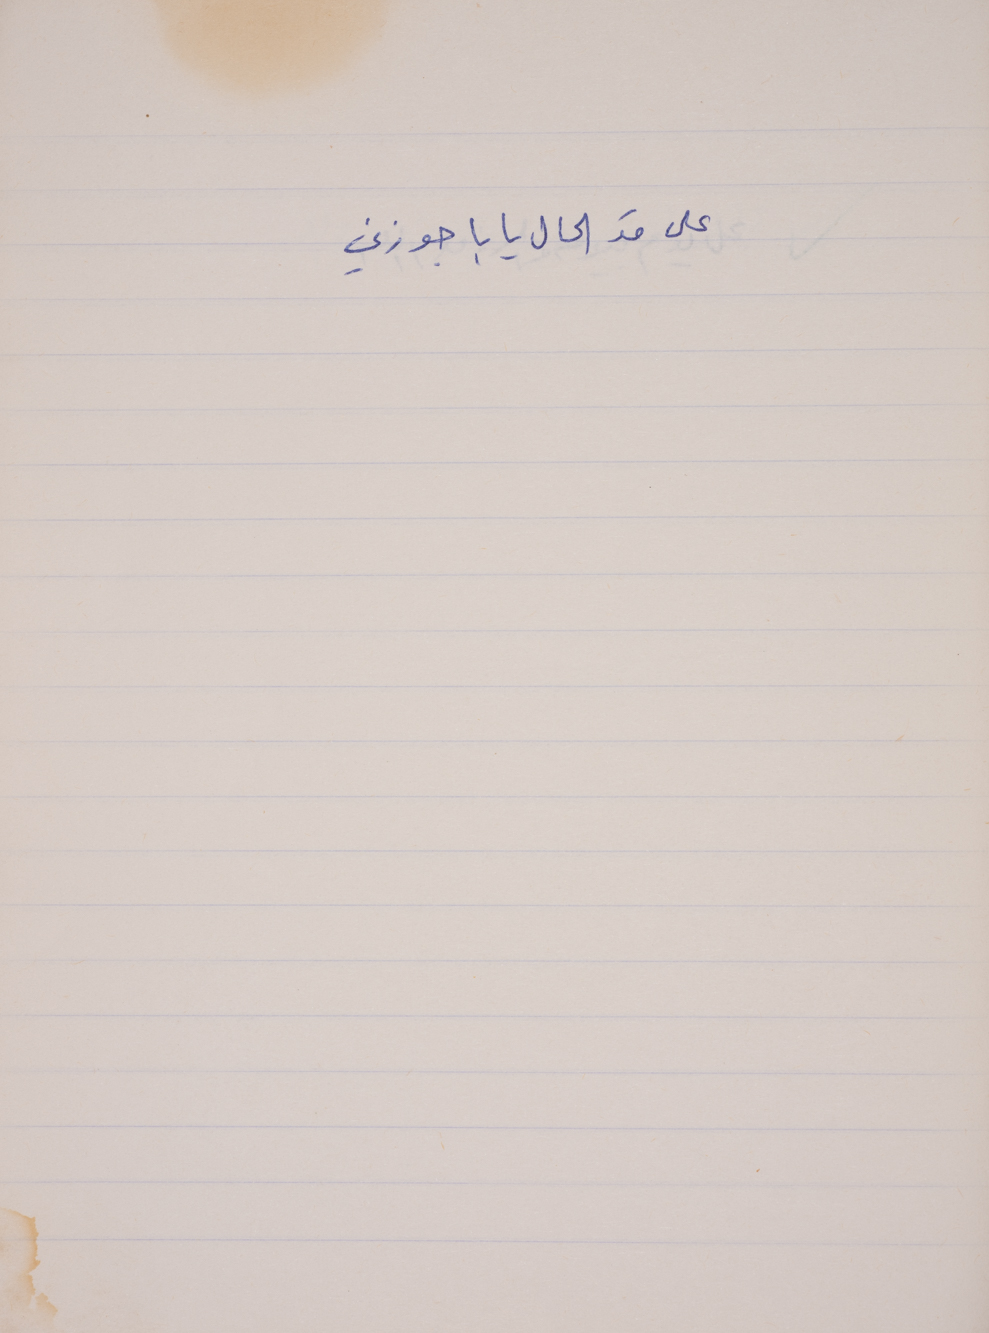 على قدّ الحال يا با جوزني